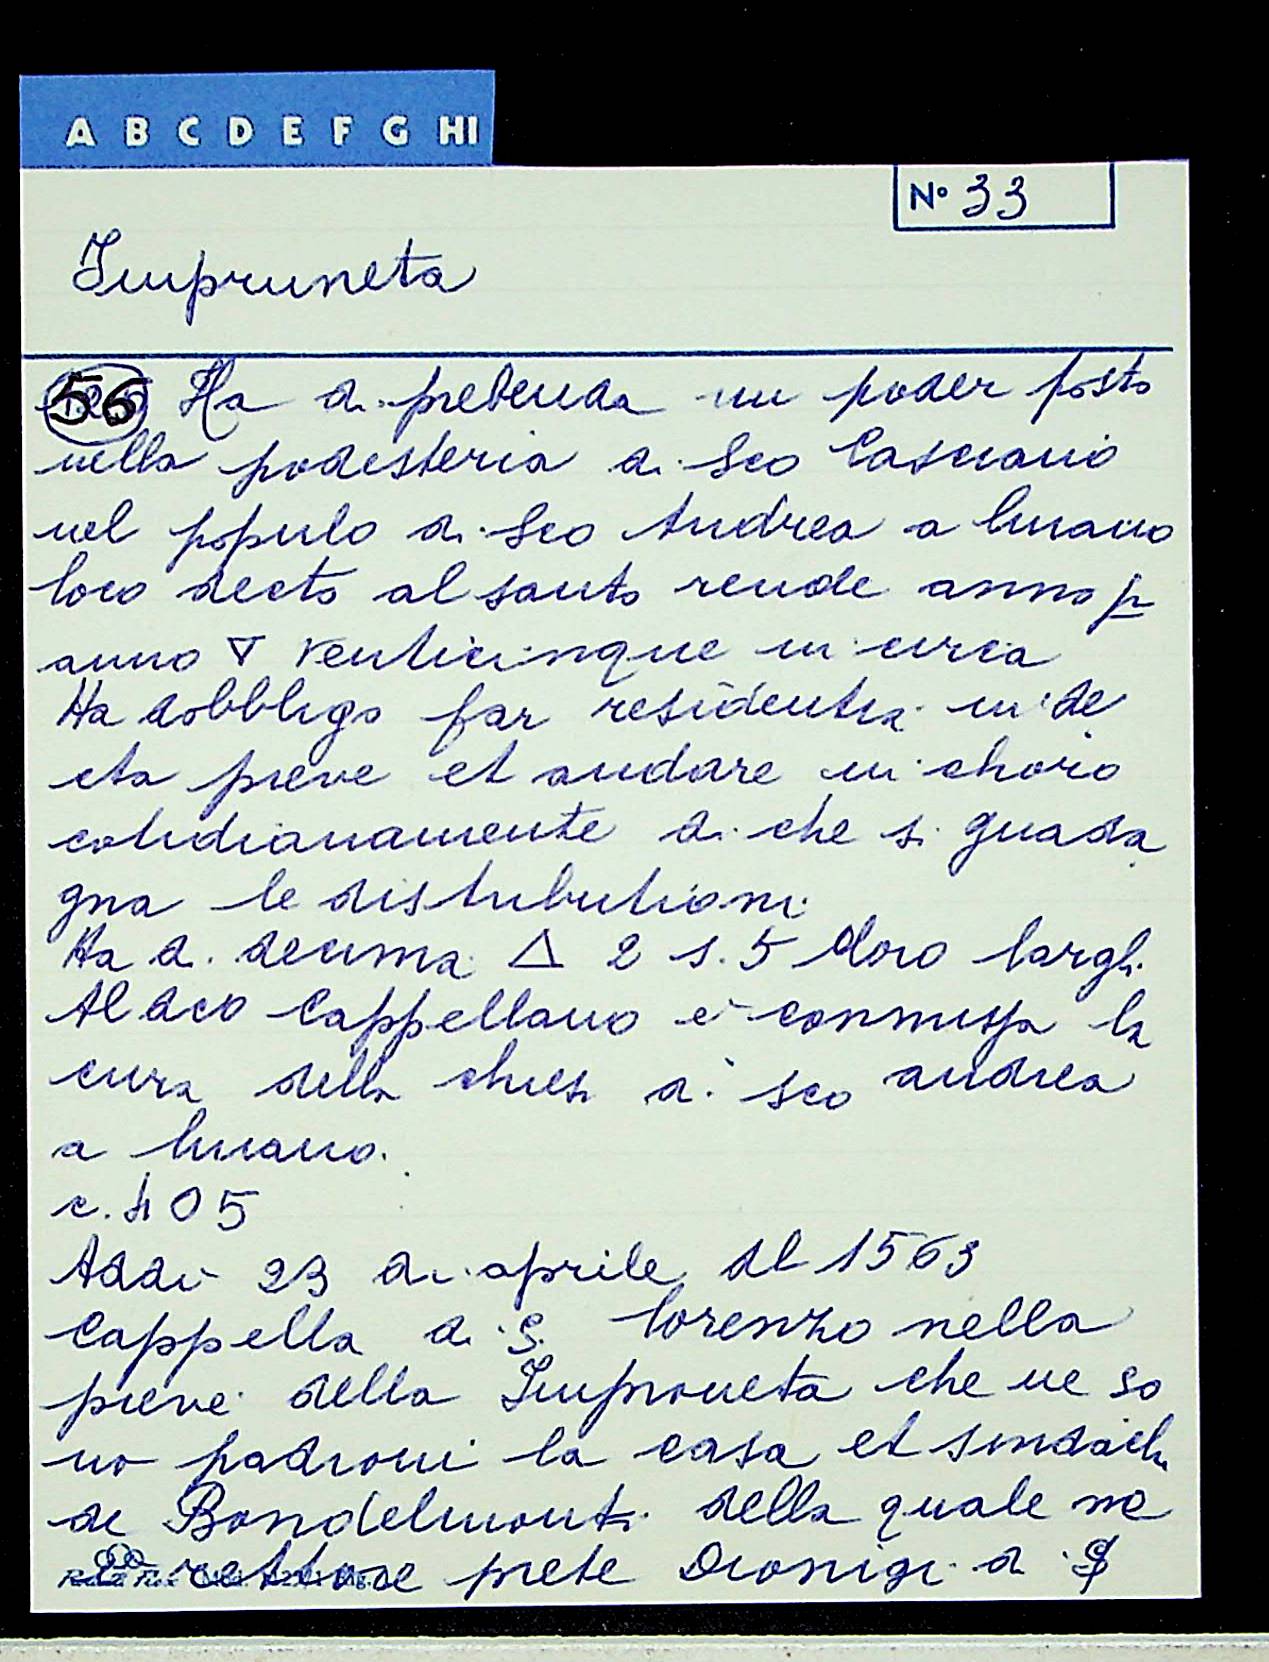 A B C D E F G HI
N° 33
Impruneta
56 Ha di prebenda un poder posto
nella podesteria di Sco Casciano
nel populo di Sco Andrea a luiano
loco decto al santo rende anno p
anno ∇ venticinque in circa
Ha dobbligo far residentia in de
cta pieve et andare in choro
cotidianamente di che si guada
gna le distributioni
Ha di decima Δ 2 s. 5 doro larghi
Al dco Cappellano è commissa la
cura della chiesa di sco andrea
a luiano.
c. 405
Addì 23 di aprile del 1563
Cappella di S. lorenzo nella
pieve della Improneta che ne so
no padroni la casa et sindachi
de Bondelmonti della quale ne
è rettore prete Dionigi di S